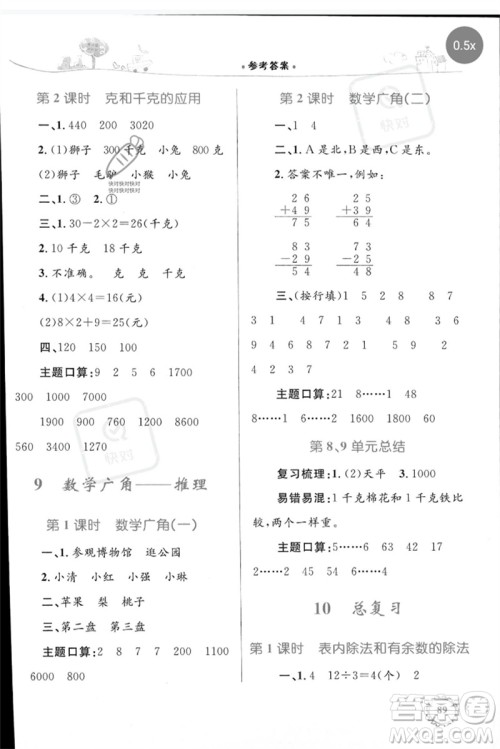 0.5x
·参考答案·
第2课时　克和千克的应用
一、1. 440　200　3020
2. (1)狮子　300千克　小兔　800克
(3)狮子　毛驴　小猴　小兔
二、1. ③　2. ①
三、1. 30－2×2＝26(千克)
2. 10千克　18千克　3千克
3. 不准确。　克　克　千克
4. (1)4×4＝16(元)
(2)8×2＋9＝25(元)
四、120　150
主题口算：9　2　5　6　1700
300　1000　7000
1900　900　760　1200　8000
560　3400　1270
9　数学广角——推理
第1课时　数学广角(一)
一、1. 参观博物馆　逛公园
2. 小清　小红　小强　小琳
二、苹果　梨　桃子
三、第二盘　第三盘
主题口算：2　8　7　7　800　200
6000　800
第2课时　数学广角(二)
一、1　4
二、1. A是北，B是西，C是东。
2. 答案不唯一，例如：
2 6　3 1
＋4 9　＋4 4
7 5　7 5
8 3　7 3
－2 9　－2 5
5 4　4 8
三、(按行填)1　5　2　8　8　7
1　3　4　7　5　1　4　6　3　5　2　1
4　2　3　7　6
主题口算：21　8　1……4
8……1　6……2　1600　1800　60
第8、9单元总结
复习梳理：(1)天平　(4)1000
易错易混：1千克棉花和1千克铁比
较，两个一样重。
主题口算：5……6　5……1　8
5……2　6……3　6　8　7
10　总复习
第1课时　表内除法和有余数的除法
一、1. 4　12÷3＝4(个)　2
89
快对
快对快对快对
快对快对快对
答案圈
MXQE.COM